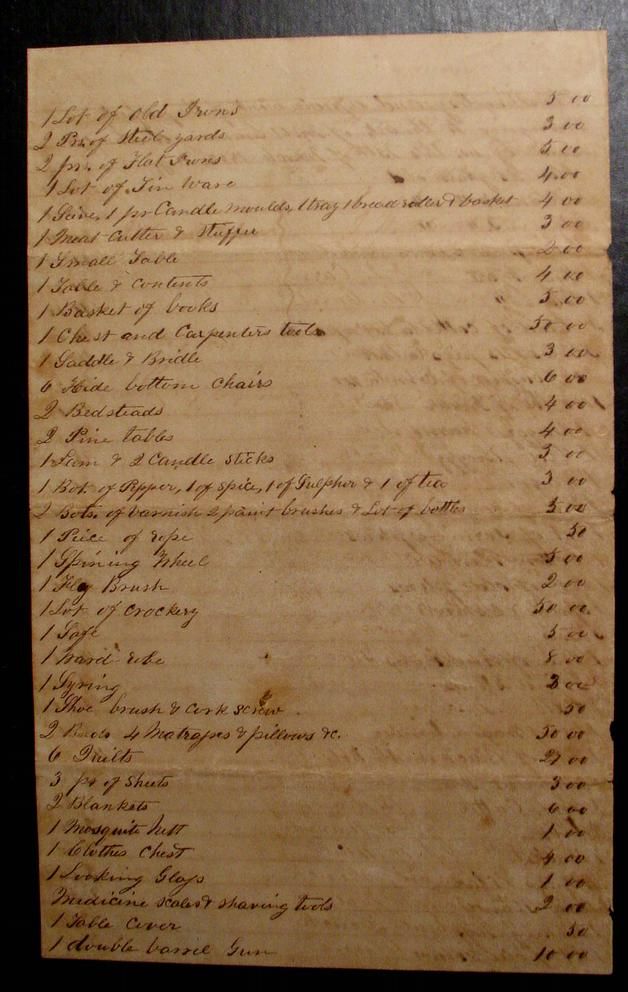 1 Lot of Old Irons 5 00
2 Prs. of Steelyards 3 00
2 prs. of Flat Irons 5 00
1 Lot of Tin Ware 4.00
1 Seive, 1 pr Candle moulds, 1 tray 1 bread & basket 4 00
1 Meat Cutter & Stuffer 3 00
1 Small Table 2 00
1 Table & contents 4 00
1 Basket of books 5.00
1 Chest and Carpenters tools 50 00
1 Saddle & Bridle 3 00
6 Hide bottom chairs 6 00
2 Bedsteads 4 00
2 Pine tables 4 00
1 Lam & 2 Candle sticks 3 00
1 Bot. of Pepper, 1 of Spice, 1 of Sulpher & 1 of tea 3 00
2 Bots. of varnish 2 paint brushes & Lot of bottles 5 00
1 Piece of rope 50
1 Spining Wheel 5 00
1 Brush 2 00
1 Lot of crockery 50 00
1 Safe 5 00
1 Ward robe 8 00
1 Syring 3 00
1 Shoe brush & cork screw 50
2 Beds 4 Matrasses & pillows &c. 50 00
6 Quilts 00
3 pr of Sheets 3 00
2 Blankets 6 00
1 Mosquito Nett 1 00
1 Clothes Chest 4 00
1 Looking Glass 1 00
Medicine scales & shaving tools 2 00
1 Table Cover 50
1 double barril Gun 10 00